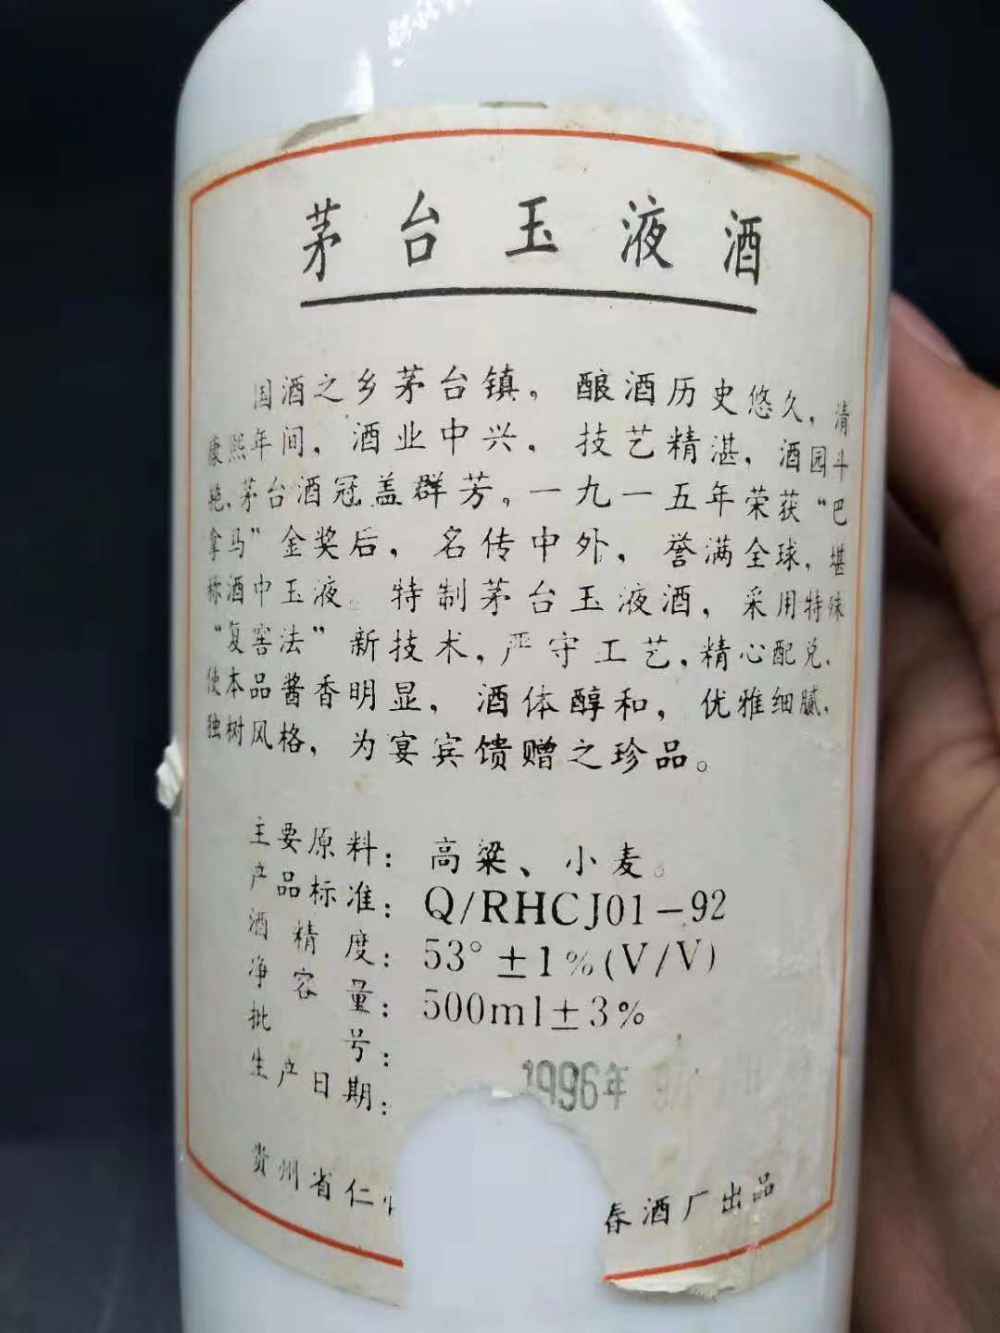 茅台玉液酒
国酒之乡茅台镇。酿酒历史悠久，清
康熙年间，酒业中兴，技艺精湛，酒园斗
艳，茅台酒冠盖群芳。一九一五年荣获“巴
拿马”金奖后，名传中外，誉满全球，堪
称酒中玉液。特制茅台玉液酒，采用特殊
“复窖法”新技术，严守工艺，精心配兑，
使本品酱香明显，酒体醇和，优雅细腻，
独树风格，为宴宾馈赠之珍品。
主要原料：高粱、小麦。
产品标准：Q/RHCJ01－92
酒精度：53°±1%(V/V)
净容量：500ml±3%
批号：
生产日期：1996年
贵州省仁 春酒厂出品